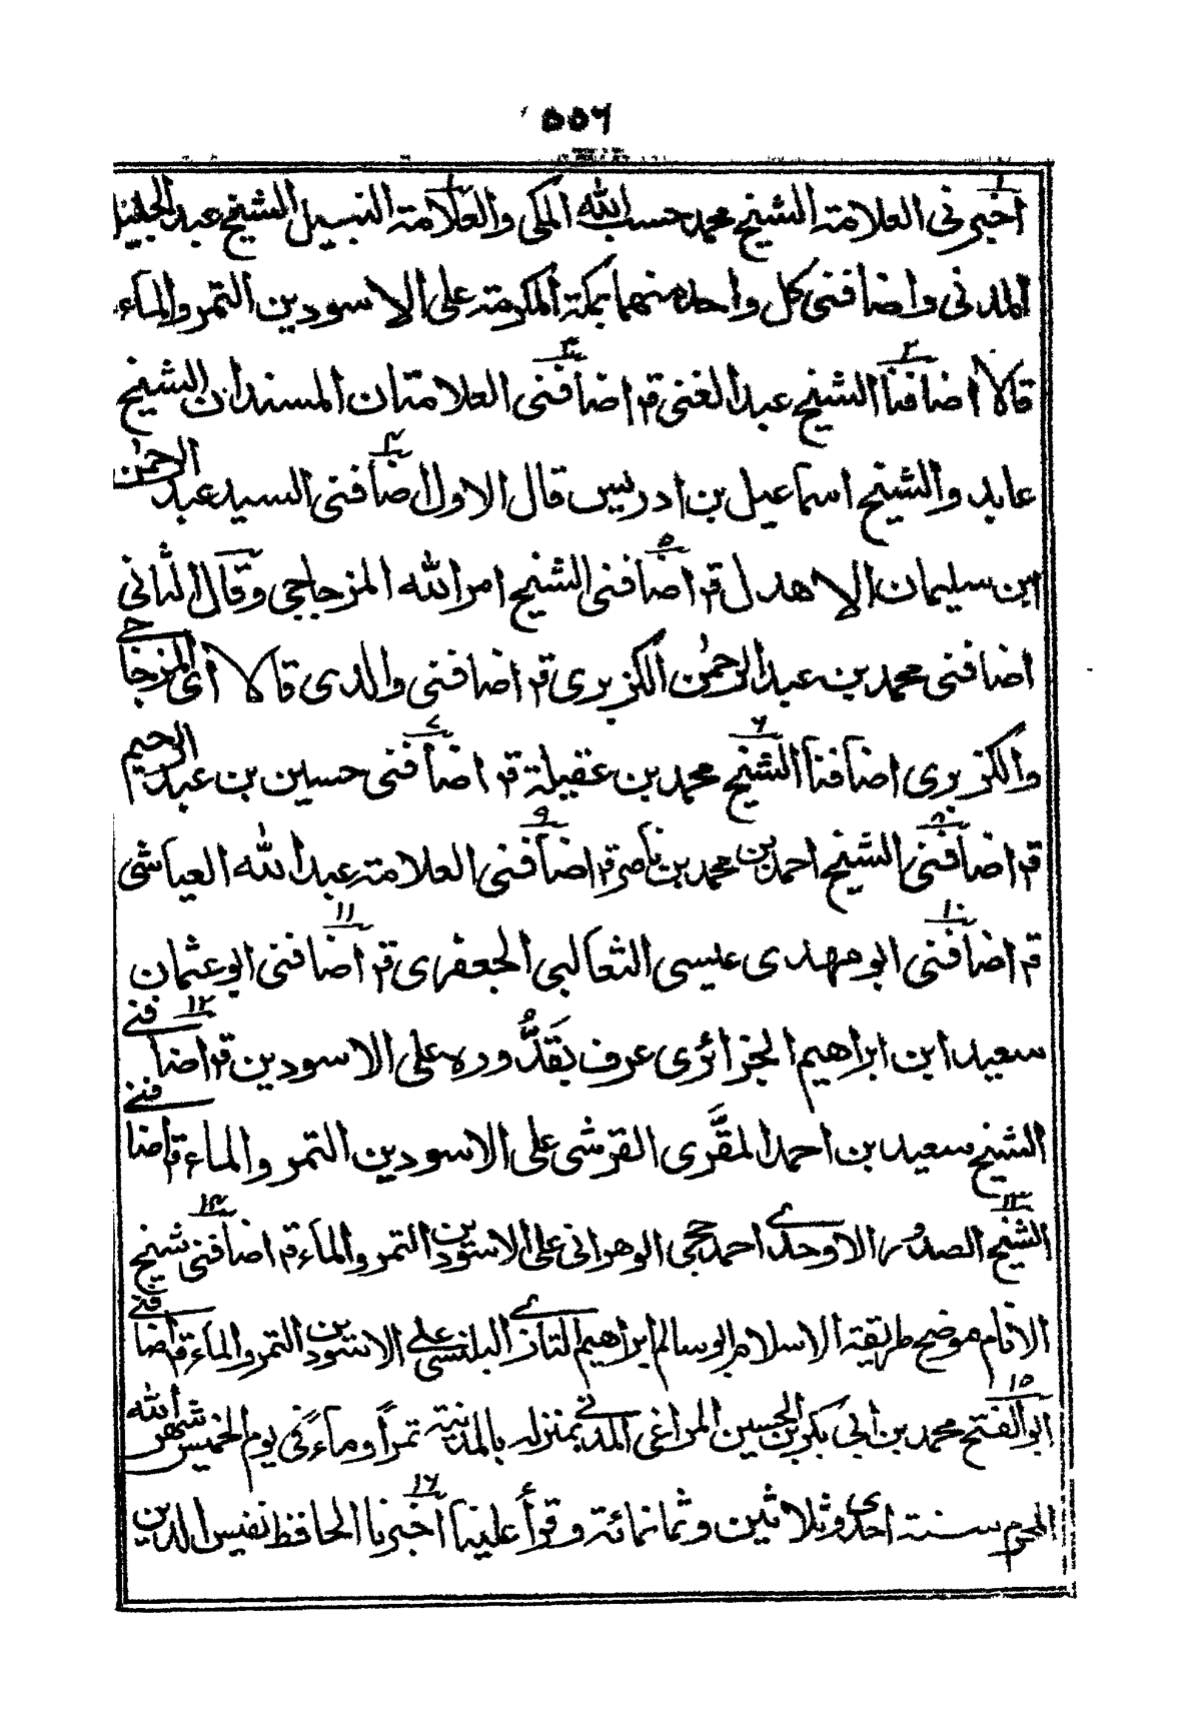 ۵۵۶
۱ اخبرنی العلامۃ الشیخ محمد حسب اللہ المکی والعلامۃ النبیل الشیخ عبد الجلیل
المدنی واضافنی کل واحد منھما بمکۃ المکرمۃ علی الاسودین التمر والماء
قالا اضافنا ۲ الشیخ عبد الغنی قم اضافنی ۳ العلامتان المسندان الشیخ
عابد والشیخ اسماعیل بن ادریس قال الاول اضافنی ۴ السید عبد الرحمٰن
ابن سلیمان الاھدل قم اضافنی ۵ الشیخ امر اللہ المزجاجی وقال الثانی
اضافنی محمد بن عبد الرحمٰن الکزبری قم اضافنی والدی قالا ای المزجاجی
والکزبری اضافنا ۶ الشیخ محمد بن عقیلۃ قم اضافنی ۷ حسین بن عبد الرحیم
قم اضافنی ۸ الشیخ احمد بن محمد بن ناصر قم اضافنی ۹ العلامۃ عبد اللہ العیاشی
قم اضافنی ۱۰ ابو مھدی عیسی الثعالبی الجعفری قم اضافنی ۱۱ ابو عثمان
سعید ابن ابراھیم الجزائری عرف بقَدُّورہ علی الاسودین قم اضافنی ۱۲
الشیخ سعید بن احمد المقَّری القرشی علی الاسودین التمر والماء قم اضافنی
۱۳ الشیخ الصدر الاوحدی احمد حجی الوھرانی علی الاسودین التمر والماء قم اضافنی ۱۴ شیخ
الانام موضح طریقۃ الاسلام ابو سالم ابراھیم التازی البلنسی علی الاسودین التمر والماء قم اضافنی
۱۵ ابو الفتح محمد بن ابی بکر بن الحسین المراغی المدنی بمنزلہ بالمدینۃ تمراً وماءً فی یوم الخمیس شھر اللہ
المحرم سنۃ احدی وثلاثین وثمانمائۃ وقرأ علینا اخبرنا ۱۶ الحافظ نفیس الدین